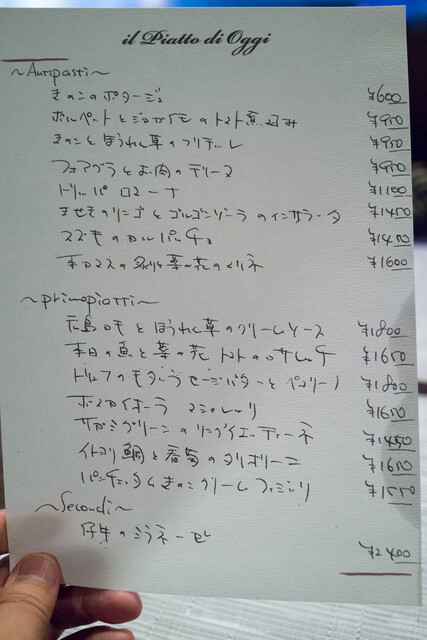 il Piatto di Oggi
~Antipasti~
きのこのポタージュ ¥600
ポルペットとジャガイモのトマト煮込み ¥950
きのことほうれん草のフリテッレ ¥950
フォアグラとお肉のテリーヌ ¥950
トリッパ ロマーナ ¥1100
リンゴとゴルゴンゾーラのインサラータ ¥1450
スズキのカルパッチョ ¥1450
本マスの炙りと菜の花のマリネ ¥1600
~primopiatti~
広島カキとほうれん草のクリームソース ¥1800
本日の魚と菜の花 トマトの ¥1650
トリュフの セージバターとペコリーノ ¥1800
ボスカイオーラ ¥1650
サルシッチャ グリーンの リングイネ ¥1450
イトヨリ鯛と春菊のタリオリーニ ¥1650
パンチェッタときのこクリーム フジッリ ¥1550
~Secondi~
仔牛のミラネーゼ ¥2400